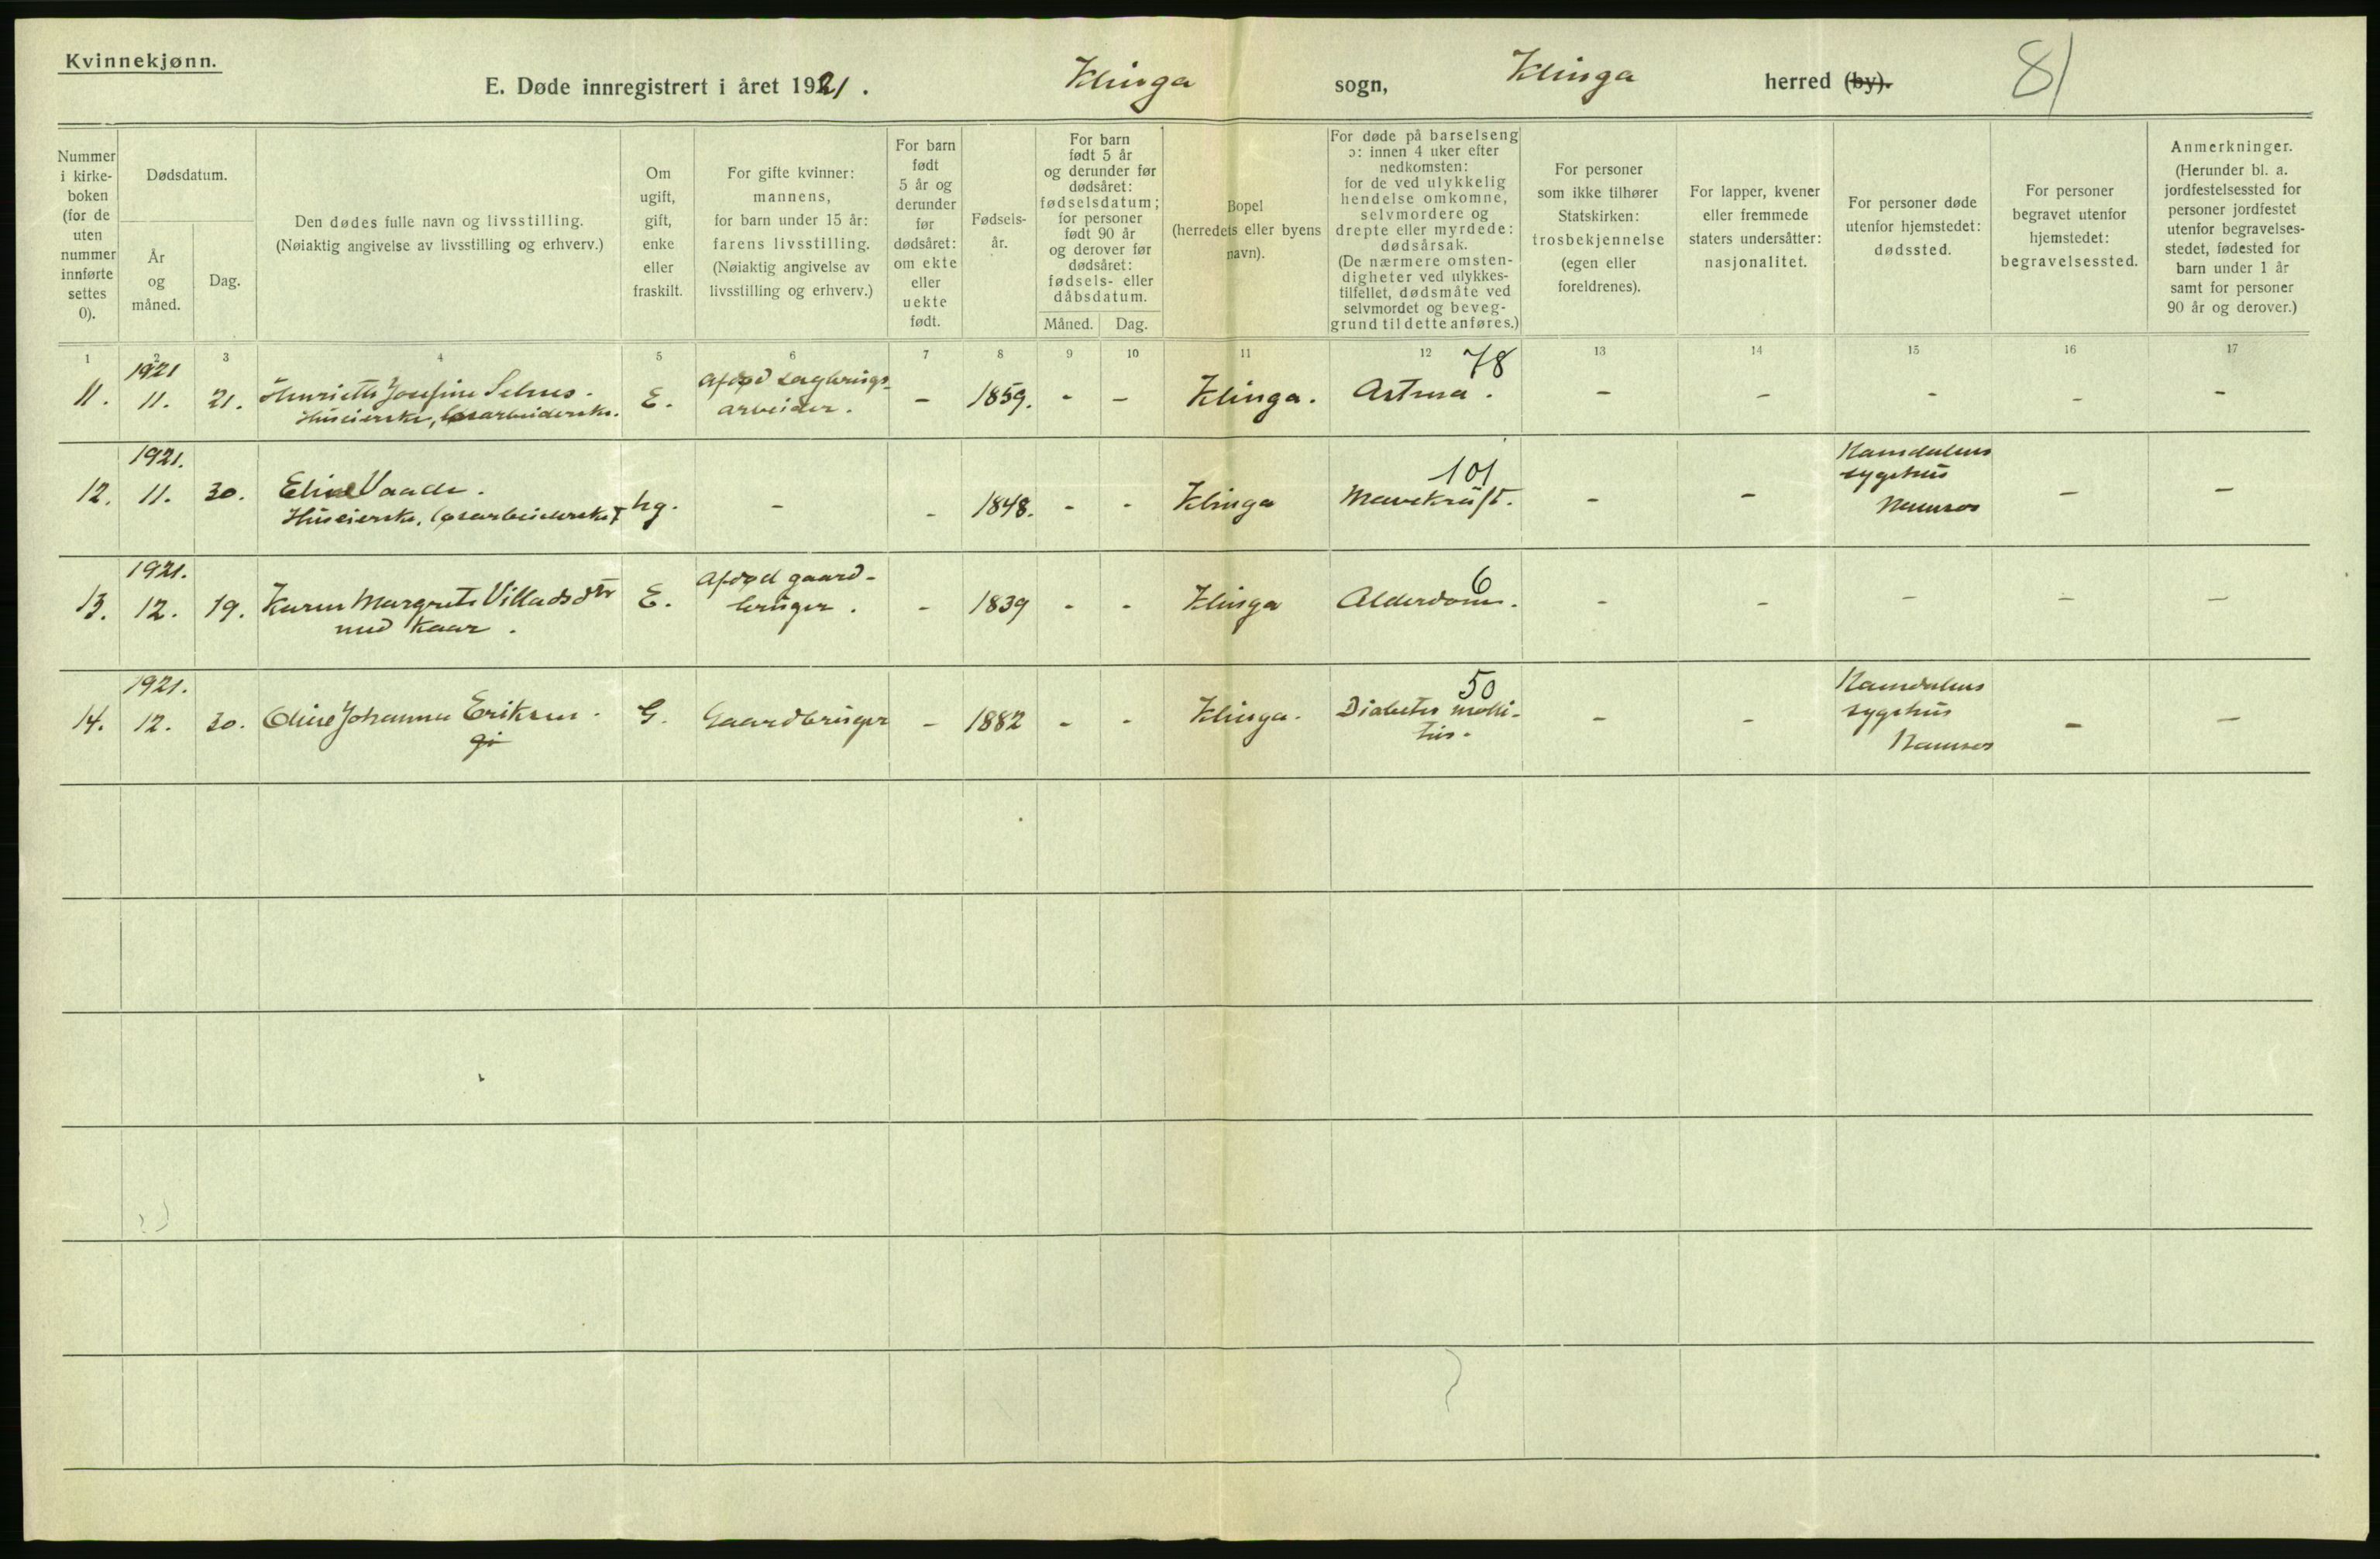 Kvinnekjønn.
E. Døde innregistrert i året 1921. Klinga sogn, Klinga herred (by). 81
Nummer
i kirke-
boken
(for de
uten
nummer
innførte
settes
0).
Dødsdatum.
År
og
måned.
Dag.
Den dødes fulle navn og livsstilling.
(Nøiaktig angivelse av livsstilling og erhverv.)
Om
ugift,
gift,
enke
eller
fraskilt.
For gifte kvinner:
mannens,
for barn under 15 år:
farens livsstilling.
(Nøiaktig angivelse av
livsstilling og erhverv.)
For barn
født
5 år og
derunder
før
dødsåret:
om ekte
eller
uekte
født.
Fødsels-
år.
For barn
født 5 år
og derunder før
dødsåret:
fødselsdatum;
for personer
født 90 år
og derover før
dødsåret:
fødsels- eller
dåbsdatum.
Måned. Dag.
Bopel
(herredets eller byens
navn).
For døde på barselseng
ɔ: innen 4 uker efter
nedkomsten:
for de ved ulykkelig
hendelse omkomne,
selvmordere og
drepte eller myrdede:
dødsårsak.
(De nærmere omsten-
digheter ved ulykkes-
tilfellet, dødsmåte ved
selvmordet og beveg-
grund til dette anføres.)
For personer
som ikke tilhører
Statskirken:
trosbekjennelse
(egen eller
foreldrenes).
For lapper, kvener
eller fremmede
staters undersåtter:
nasjonalitet.
For personer døde
utenfor hjemstedet:
dødssted.
For personer
begravet utenfor
hjemstedet:
begravelsessted.
Anmerkninger.
(Herunder bl. a.
jordfestelsessted for
personer jordfestet
utenfor begravelses-
stedet, fødested for
barn under 1 år
samt for personer
90 år og derover.)
1 2 3 4 5 6 7 8 9 10 11 12 13 14 15 16 17
1921
11. 11. 21. Henriette Josefine Selnes.
Huseierske, løsarbeiderske.
E.
Afdød sagbrugs-
arbeider.
- 1859. - - Klinga.
78
Astma.
- - - - -
1921.
12. 11. 30. Eline Vaade.
Huseierske, løsarbeiderske
Ug. - - 1848. - - Klinga
101
Mavekræft.
- -
Namdalens
sygehus
Namsos
- -
1921.
13. 12. 19. Karen Margrete Villadsdtr
med kaar.
E.
Afdød gaard-
bruger.
- 1839 - - Klinga
6
Alderdom.
- - - - -
1921.
14. 12. 30. Oline Johanna Eriksen.
G. Gaardbruger - 1882 - - Klinga.
50
Diabetes melli-
tus.
- -
Namdalens
sygehus
Namsos
- -